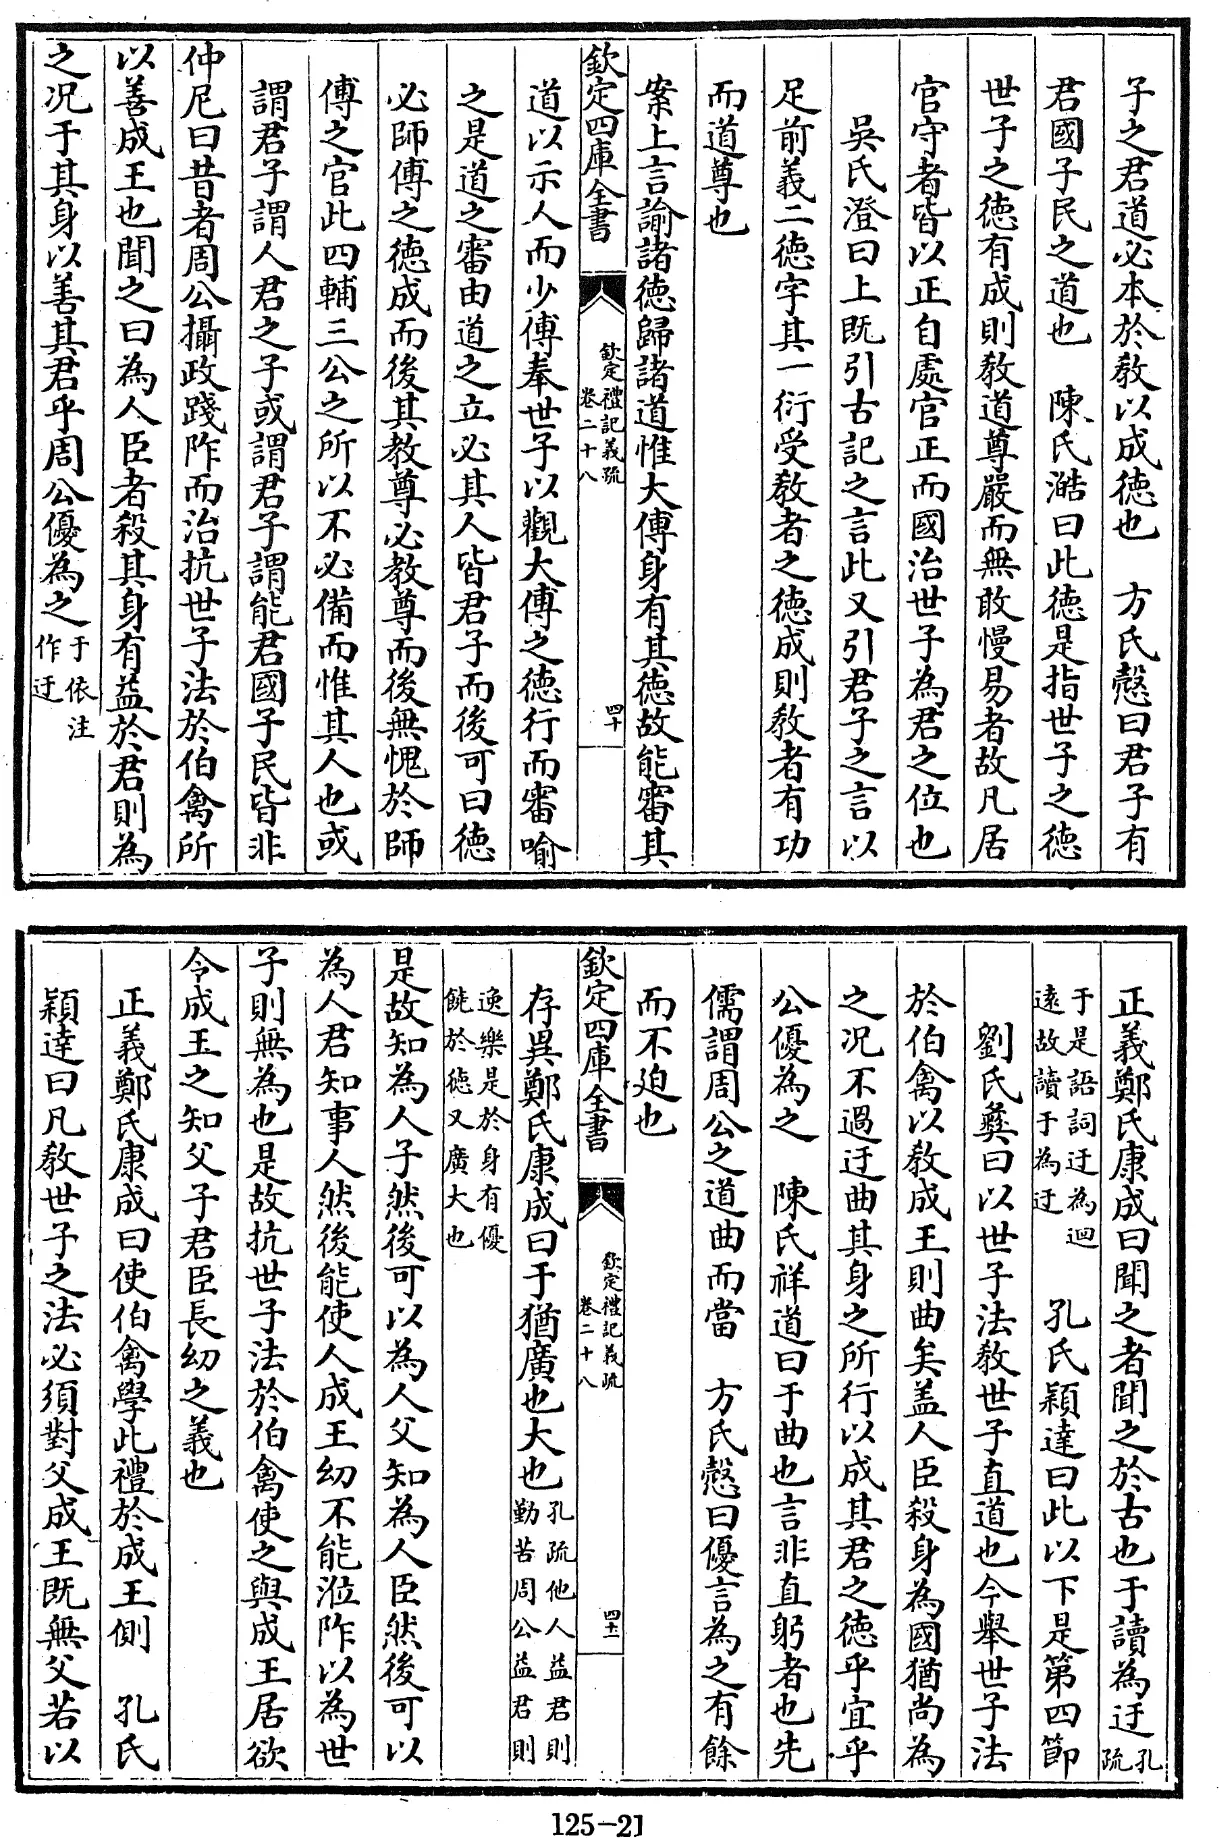 子之君道必本於教以成德也　方氏慤曰君子有
君國子民之道也　陳氏澔曰此德是指世子之德
世子之德有成則教道尊嚴而無敢慢易者故凡居
官守者皆以正自處官正而國治世子為君之位也
吳氏澄曰上既引古記之言此又引君子之言以
足前義二德字其一衍受教者之德成則教者有功
而道尊也
案上言諭諸德歸諸道惟大傅身有其德故能審其
欽定四庫全書
欽定禮記義疏
卷二十八
四十
道以示人而少傅奉世子以觀大傅之德行而審喻
之是道之審由道之立必其人皆君子而後可曰德
必師傅之德成而後其教尊必教尊而後無愧於師
傅之官此四輔三公之所以不必備而惟其人也或
謂君子謂人君之子或謂君子謂能君國子民皆非
仲尼曰昔者周公攝政踐阼而治抗世子法於伯禽所
以善成王也聞之曰為人臣者殺其身有益於君則為
之況于其身以善其君乎周公優為之于依注
作迂
正義鄭氏康成曰聞之者聞之於古也于讀為迂孔
疏
于是語詞迂為迴
遠故讀于為迂　孔氏穎達曰此以下是第四節
劉氏彝曰以世子法教世子直道也今舉世子法
於伯禽以教成王則曲矣盖人臣殺身為國猶尚為
之況不過迂曲其身之所行以成其君之德乎宜乎
公優為之　陳氏祥道曰于曲也言非直躬者也先
儒謂周公之道曲而當　方氏慤曰優言為之有餘
而不廹也
欽定四庫全書
欽定禮記義疏
卷二十八
四十一
存異鄭氏康成曰于猶廣也大也孔疏他人益君則
勤苦周公益君則
逸樂是於身有優
饒於德又廣大也
是故知為人子然後可以為人父知為人臣然後可以
為人君知事人然後能使人成王幼不能涖阼以為世
子則無為也是故抗世子法於伯禽使之與成王居欲
令成王之知父子君臣長幼之義也
正義鄭氏康成曰使伯禽學此禮於成王側　孔氏
穎達曰凡教世子之法必須對父成王既無父若以
125-21